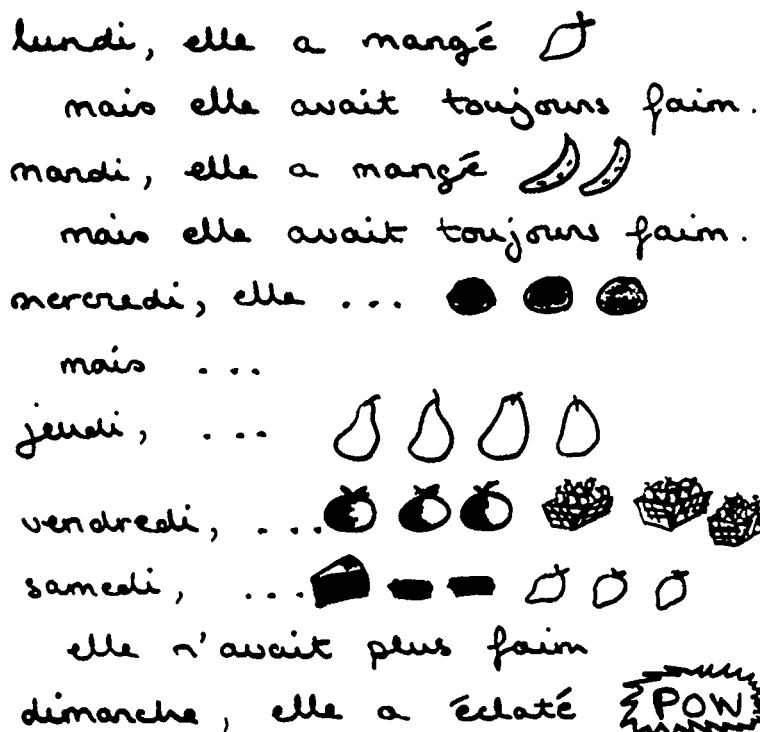 lundi, elle a mangé
mais elle avait toujours faim.
mardi, elle a mangé
mais elle avait toujours faim.
mercredi, elle ...
mais ...
jeudi, ...
vendredi, ...
samedi, ...
elle n'avait plus faim
dimanche, elle a éclaté POW